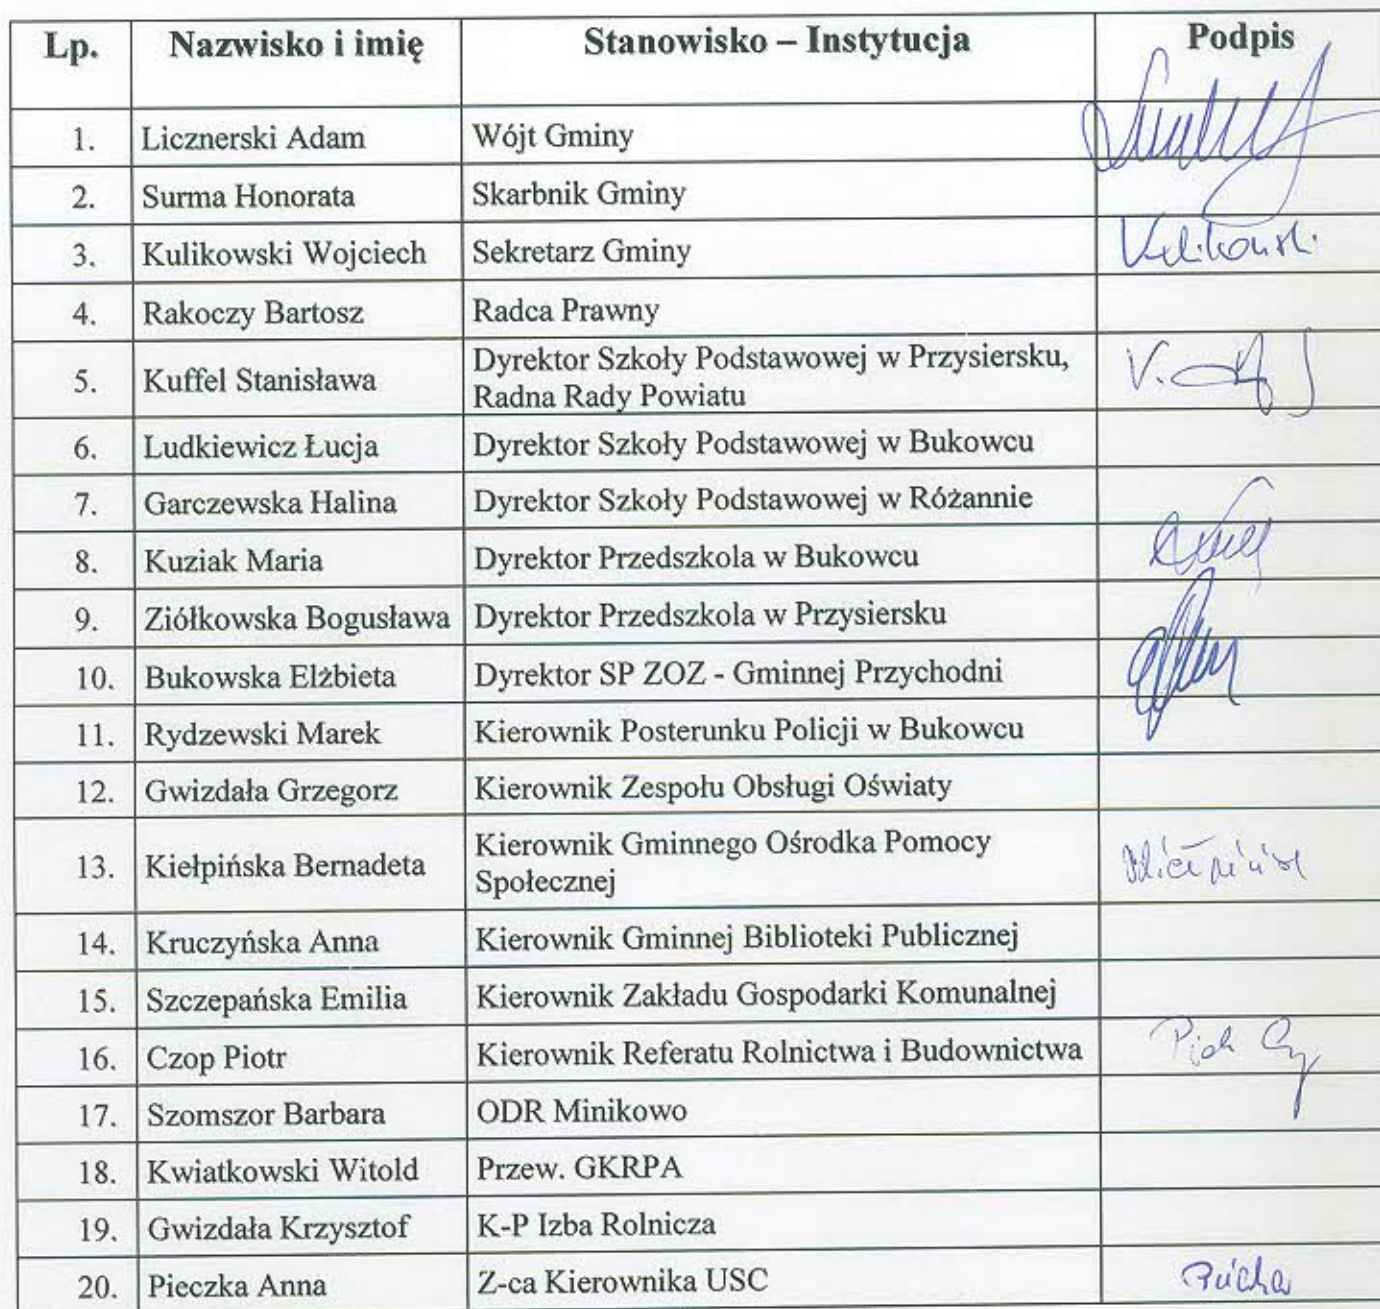 Lp. Nazwisko i imię Stanowisko – Instytucja Podpis
1. Licznerski Adam Wójt Gminy
2. Surma Honorata Skarbnik Gminy
3. Kulikowski Wojciech Sekretarz Gminy Kulikowski
4. Rakoczy Bartosz Radca Prawny
5. Kuffel Stanisława Dyrektor Szkoły Podstawowej w Przysiersku,
Radna Rady Powiatu
6. Ludkiewicz Łucja Dyrektor Szkoły Podstawowej w Bukowcu
7. Garczewska Halina Dyrektor Szkoły Podstawowej w Różannie
8. Kuziak Maria Dyrektor Przedszkola w Bukowcu
9. Ziółkowska Bogusława Dyrektor Przedszkola w Przysiersku
10. Bukowska Elżbieta Dyrektor SP ZOZ - Gminnej Przychodni
11. Rydzewski Marek Kierownik Posterunku Policji w Bukowcu
12. Gwizdała Grzegorz Kierownik Zespołu Obsługi Oświaty
13. Kiełpińska Bernadeta Kierownik Gminnego Ośrodka Pomocy
Społecznej
14. Kruczyńska Anna Kierownik Gminnej Biblioteki Publicznej
15. Szczepańska Emilia Kierownik Zakładu Gospodarki Komunalnej
16. Czop Piotr Kierownik Referatu Rolnictwa i Budownictwa
17. Szomszor Barbara ODR Minikowo
18. Kwiatkowski Witold Przew. GKRPA
19. Gwizdała Krzysztof K-P Izba Rolnicza
20. Pieczka Anna Z-ca Kierownika USC